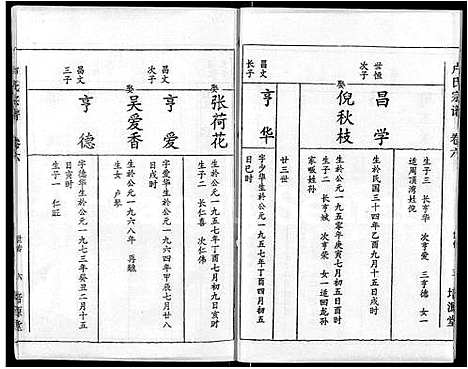 卢氏宗谱 卷六
培源堂
生子三 长亨华 次亨爱 三亨德 女一
适周顶湾姓倪
世恒
次子
昌学
生於民国三十四年乙酉九月十五日戌时
娶
倪秋枝
生於公元一九五零年庚寅七月初五日亥时
生子二 长亨城 次亨荣 女一 适田龙孙
家畈姓孙
廿三世
昌文
长子
亨华
字少华生於公元一九五七年丁酉四月初五
日巳时
娶
张荷花
生於公元一九五七年丁酉七月初三日亥时
生子二 长仁喜 次仁伟
昌文
次子
亨爱
字爱华生於公元一九六四年甲辰七月廿八
日戌时
娶
吴爱香
生於公元一九六八年 再醮
生女 卢琴
昌文
三子
亨德
字德华生於公元一九七三年癸丑二月十五
日亥时
生子一 仁旺
卢氏宗谱 卷六
六 培源堂